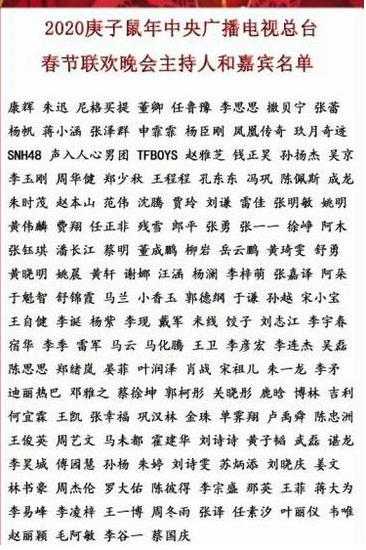 2020庚子鼠年中央广播电视总台
春节联欢晚会主持人和嘉宾名单
康辉 朱迅 尼格买提 董卿 任鲁豫 李思思 撒贝宁 张蕾
杨帆 蒋小涵 张泽群 申霏霏 杨臣刚 凤凰传奇 玖月奇迹
SNH48 声入人心男团 TFBOYS 赵雅芝 钱正昊 孙扬杰 吴京
李玉刚 周华健 郑少秋 王程程 孔东东 冯巩 陈佩斯 成龙
朱时茂 赵本山 范伟 沈腾 贾玲 刘谦 雷佳 张明敏 姚明
黄伟麟 费翔 任正非 残雪 郎平 张勇 张一一 徐峥 阿木
张钰琪 潘长江 蔡明 董成鹏 柳岩 岳云鹏 黄琦雯 舒勇
黄晓明 姚晨 黄轩 谢娜 汪涵 杨澜 李梓萌 张嘉译 阿朵
于魁智 舒锦霞 马兰 小香玉 郭德纲 于谦 孙越 宋小宝
王自健 李诞 杨紫 李现 戴军 米线 饺子 刘志江 李宇春
宿华 李季 雷军 马云 马化腾 王卫 李彦宏 李连杰 吴磊
陈思思 郑绪岚 晏菲 叶润泽 肖战 宋祖儿 朱一龙 李矛
迪丽热巴 邓雅之 蔡徐坤 郭柯彤 关晓彤 鹿晗 博林 吉利
何宜霖 王凯 张幸福 巩汉林 金珠 单霁翔 卢禹舜 陈忠洲
王俊英 周艺文 马未都 霍建华 刘诗诗 黄子韬 武磊 谌龙
李昊城 傅园慧 孙杨 朱婷 刘诗雯 苏炳添 刘晓庆 姜文
林书豪 周杰伦 罗大佑 陈彼得 李宗盛 那英 王菲 蒋大为
李易峰 李凌梓 王一博 周冬雨 张译 任素汐 叶丽仪 韦唯
赵丽颖 毛阿敏 李谷一 蔡国庆